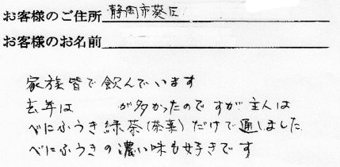 お客様のご住所 静岡市葵区
お客様のお名前
家族皆で飲んでいます
去年は が多かったのですが主人は
べにふうき緑茶(茶葉)だけで通しました
べにふうきの濃い味も好きです